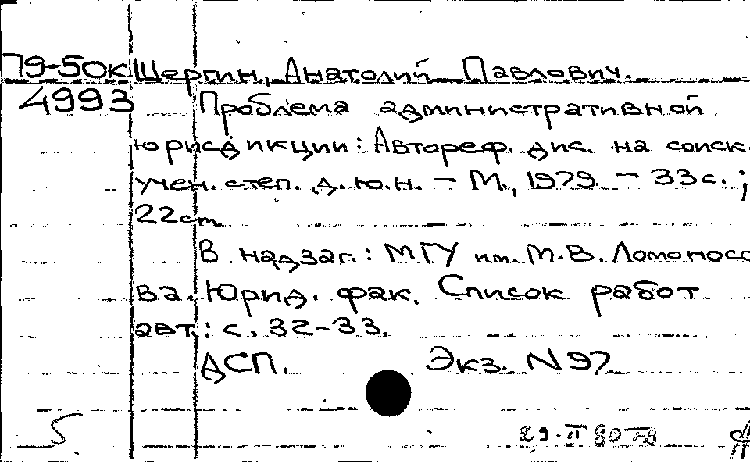 79-50к Щергин, Анатолий Павлович.
4993 Проблема административной
юрисдикции: Автореф. дис. на соиск.
учен. степ. д.ю.н. – М., 1979. – 33 с.;
22 cm
В надзаг.: МГУ им. М.В. Ломоносо
ва. Юрид. фак. Список работ
авт.: с. 32-33.
ДСП. Экз. N 97
5